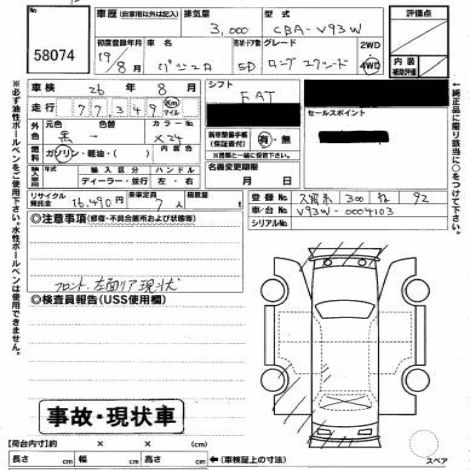 出品No.
58074
車歴 (自家用以外は記入)
排気量
3,000
型式
CBA-V93W
評価点
初度登録年月
19年
8月
車名
パジェロ
形状・ドア数
5D
グレード
ロング エクシード
2WD
4WD
内装
補助評価
車検 26年 8月
シフト
FAT
走行 77349 Km マイル
外色
元色
黒
色替
カラー No.
X24
新車整備手帳
(保証書付)
有・無
※書類と一緒に保管です。
セールスポイント
燃料
ガソリン・軽油・( )
輸入車用
年式
輸入区分
ディーラー・並行
ハンドル
左・右
名義変更期限
月 日
リサイクル
預託金
16,490円
乗車定員
7人
積載量
kg
登録No. 久留米 300 ね 92
車/台No. V93W-0004103
シリアルNo.
◎注意事項 (修復・不具合箇所および状態等)
フロント、左面リア現状
◎検査員報告 (USS使用欄)
事故・現状車
【荷台内寸】約 × ×
長さ cm 幅 cm 高さ cm
←(車検証上の寸法)
スペア
※必ず油性ボールペンをご使用下さい。水性ボールペンは使用できません。
←純正品に限り該当に○をつけて下さい。